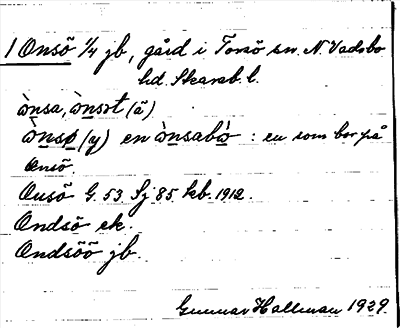 1 Onsö 1/4 jb, gård i Torsö sn. N. Vadsbo
hd. Skarab. l.
ònsa, ònsɔt (ä)
ònsø (y) en ònsabò : en som bor på
Onsö.
Onsö G. 53 Sj 85 kb. 1912.
Ondsö ek.
Ondsöö jb.
Gunnar Hallman 1929.